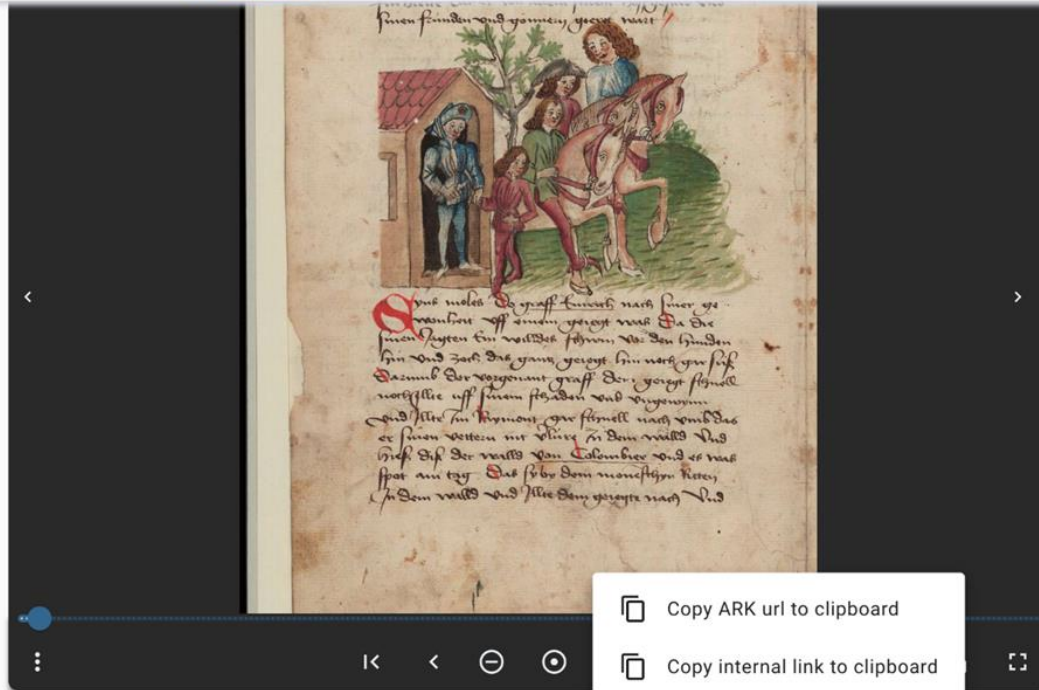 sinen frúnden vnd gonnern wart
Syns moles Do graff Emrich nach siner ge-
wonheit vff einem geiegt was Da die
sinen Jagten Ein willdes schwin vor den hunden
hin vnd zoch das gantz geiegt hin noch gar
Darumb der vorgenant graff der geiegt schnell
noch Illte uff sinem schaden vnd vngewynn
vnd Illte Im Reyment gar schnell nach vmb das
er sinen vettern nit vlüre In dem walld Vnd
hies dis der walld von Colombier vnd es was
spot am tag Das sy by dem moneschyn Ritten
In dem walld vnd Illte dem geiegte nach Vnd
Copy ARK url to clipboard
Copy internal link to clipboard